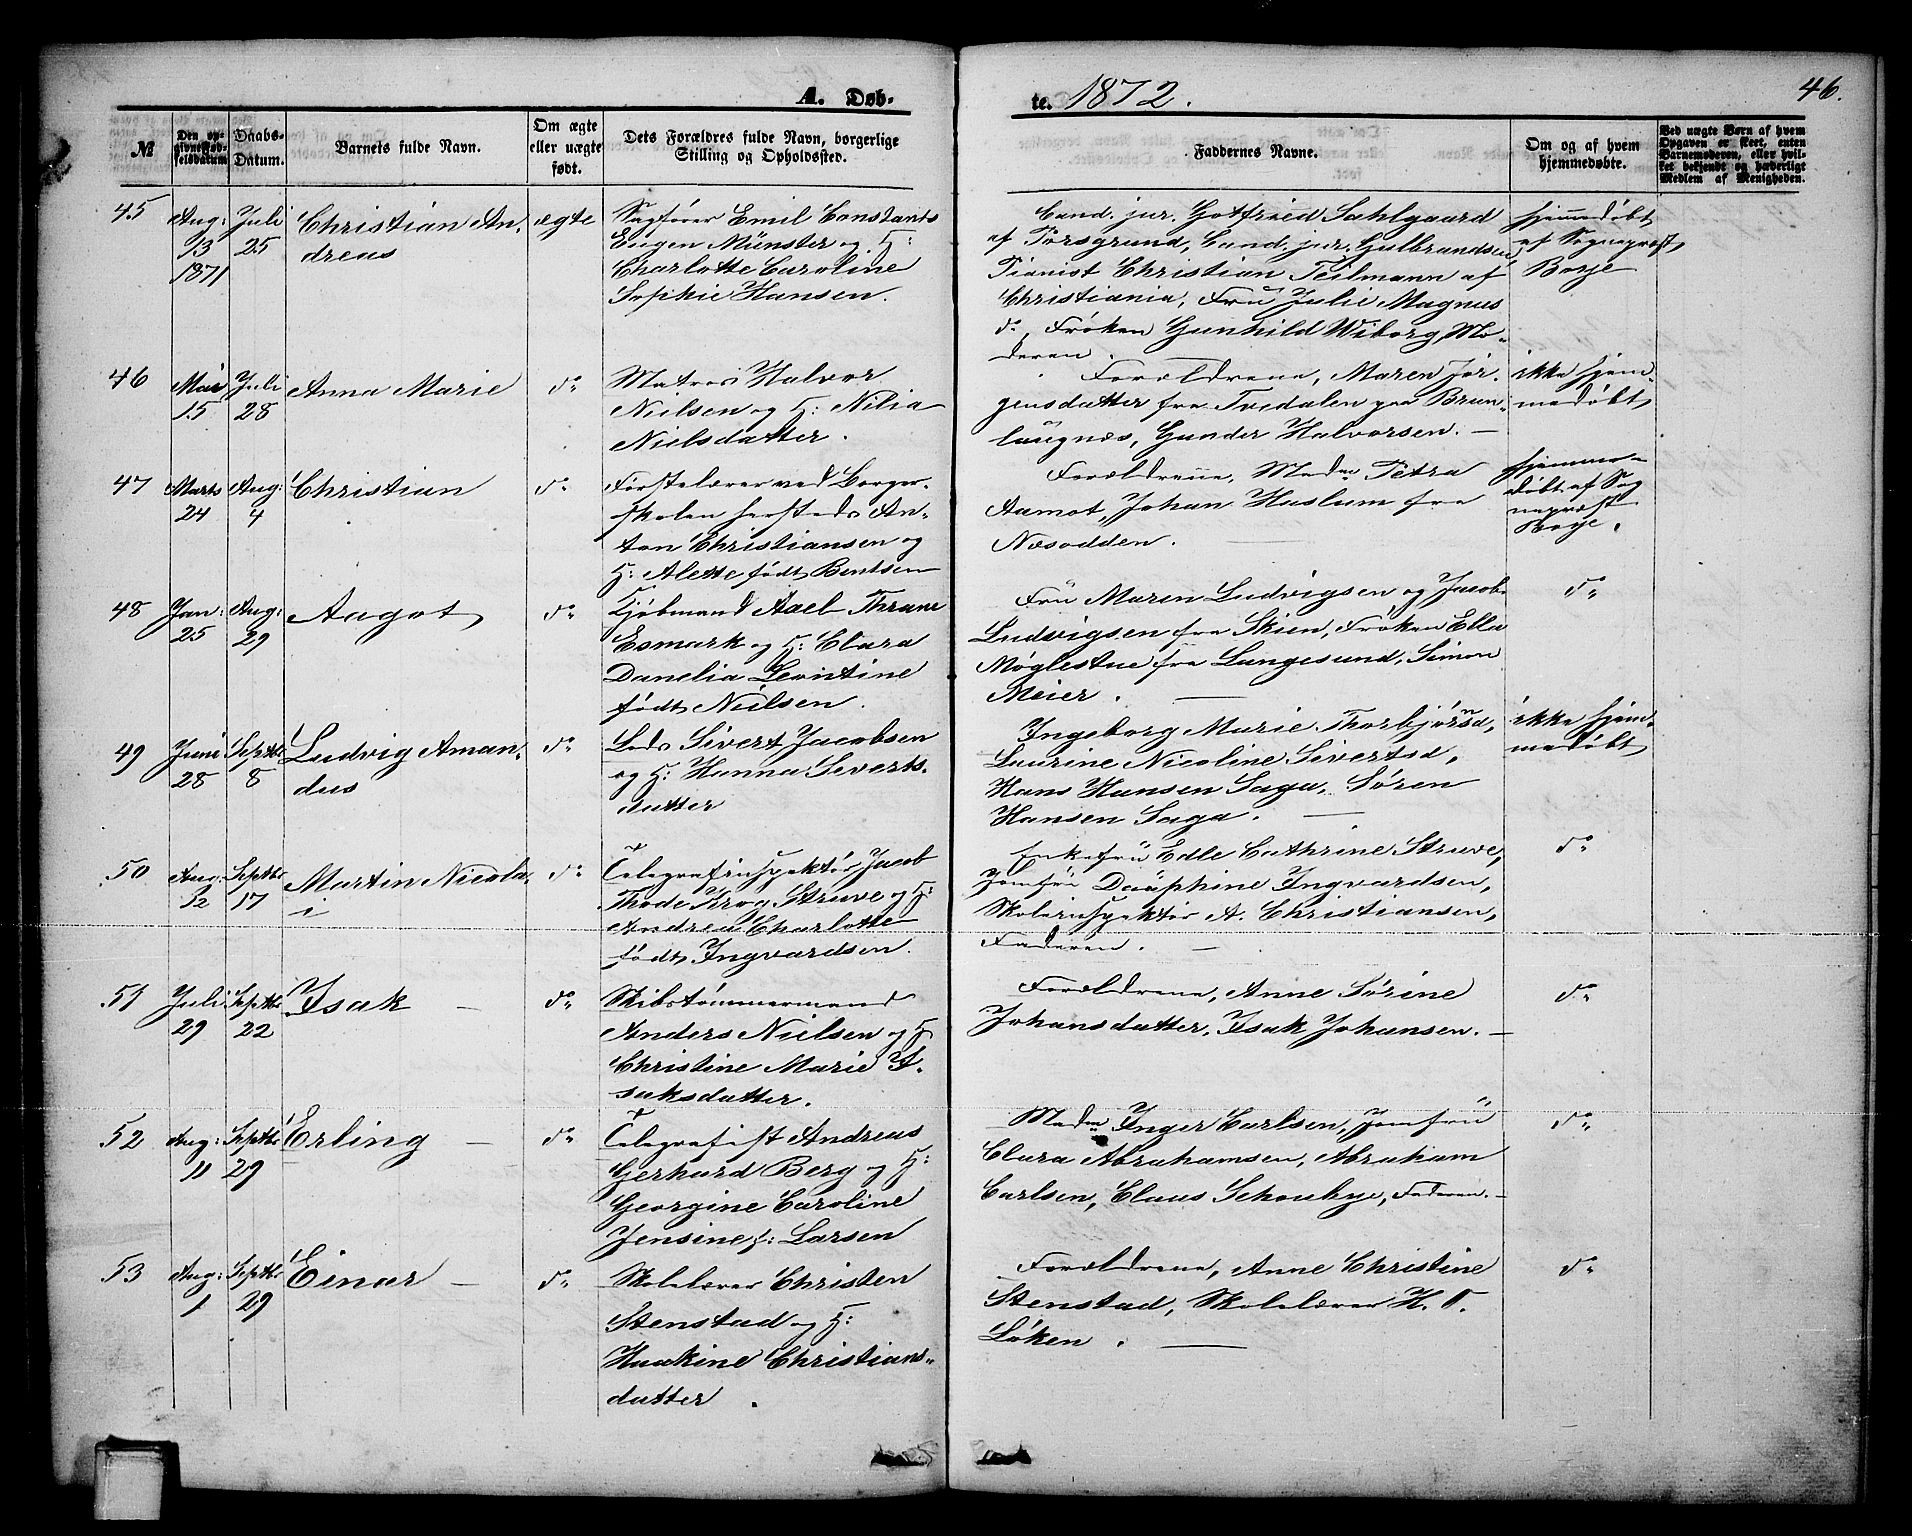 A. Døb-
te. 1872.
46.
№
Den opgivne Fødselsdatum
Daabs-Datum.
Barnets fulde Navn.
Om ægte eller uægte født.
Dets Forældres fulde Navn, borgerlige Stilling og Opholdssted.
Faddernes Navne.
Om og af hvem hjemmedøbte.
Ved uægte Børn af hvem Opgaven er skeet, enten Barnemoderen, eller hvilket bekjendt og hæderligt Medlem af Menigheden.
45
Aug:
13
1871
Juli
25
Christian An-
dreas
ægte
Sagfører Emil Constants
Eugen Münster og H:
Charlotte Caroline
Sophie Hansen.
Cand. jur. Gotfried Sahlgaard
af Porsgrund, Cand. jur. Gulbrandsen,
Pianist Christian Teilmann af
Christiania, Fru Julie Magnus
do, Frøken Gunhild Wiborg, Mo-
deren.
hjemmedøbt
af Sognepræst
Borje
46
Mai
15
Juli
28
Anna Marie
do
Matros Halvor
Nielsen og H: Nilia
Nielsdatter.
Forældrene, Maren Jør-
gensdatter fra Tvedalen paa Brun-
laugnæs, Gunder Halvorsen. —
ikke hjem-
medøbt
47
Marts
24
Aug:
4
Christian
do
Førstelærer ved Borger-
skolen hersteds An-
ton Christiansen og
H: Alette født Bentsen
Forældrene, Madm Petra
Aamot, Johan Haslum fra
Næsodden.
hjemme-
døbt af Sog
nepræst
Borje.
48
Jan:
25
Aug:
29
Aagot
do
Kjøbmand Axel Thrane
Esmark og H: Clara
Danelia Leontine
født Nielsen.
Fru Maren Ludvigsen og Jacob
Ludvigsen fra Skien, Frøken Ella
Møglestue fra Langesund, Simon
Meier. —
do
49
Juni
28
Septbr
8
Ludvig Aman-
dus
do
Lods Sivert Jacobsen
og H: Hanna Siverts-
datter
Ingeborg Marie Thorbjørnsd,
Laurine Nicoline Sivertsd,
Hans Hansen Saga, Søren
Hansen Saga. —
ikke hjem-
medøbt
50
Aug:
12
Septbr
17
Martin Nicola-
i
do
Telegrafinspektør Jacob
Thode Krog Struve og H:
Andrea Charlotte
født Ingvardsen.
Enkefru Edle Cathrine Struve,
Jomfru Daaphine Ingvardsen,
Skoleinspektør A. Christiansen,
Faderen. —
do
51
Juli
29
Septbr
22
Isak —
do
Skibstømmermand
Anders Nielsen og H
Christine Marie I-
saksdatter.
Forældrene, Anne Sørine
Johansdatter, Isak Johansen. —
do
52
Aug:
11
Septbr
29
Erling —
do
Telegrafist Andreas
Gerhard Berg og H:
Georgine Caroline
Jensine f: Larsen
Madm Inger Carlsen, Jomfru
Clara Abrahamsen, Abraham
Carlsen, Claus Schouby, Faderen. —
do
53
Aug:
1
Septbr
29
Einar —
do
Skolelærer Christen
Stenstad og H:
Haakine Christians-
datter.
Forældrene, Anne Christine
Stenstad, Skolelærer H. T.
Løken. —
do